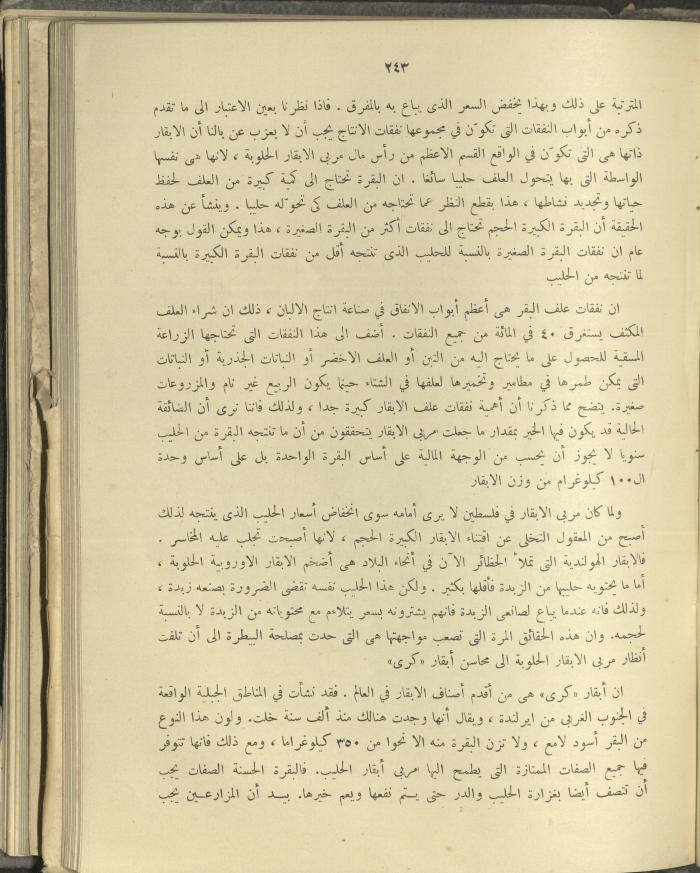 ٢٤٣
المترتبة على ذلك وبهذا يخفض السعر الذى يباع به بالمفرق . فاذا نظرنا بعين الاعتبار الى ما تقدم
ذكره من أبواب النفقات التى تكوّن في مجموعها نفقات الانتاج يجب أن لا يعزب عن بالنا أن الابقار
ذاتها هى التى تكوّن في الواقع القسم الاعظم من رأس مال مربى الابقار الحلوبة ، لانها هى نفسها
الواسطة التى بها يتحول العلف حليبا سائغا . ان البقرة تحتاج الى كمية كبيرة من العلف لحفظ
حياتها وتجديد نشاطها ، هذا بقطع النظر عما تحتاجه من العلف كى تحوّله حليبا . وينشأ عن هذه
الحقيقة أن البقرة الكبيرة الحجم تحتاج الى نفقات أكثر من البقرة الصغيرة ، هذا ويمكن القول بوجه
عام ان نفقات البقرة الصغيرة بالنسبة للحليب الذى تنتجه أقل من نفقات البقرة الكبيرة بالنسبة
لما تنتجه من الحليب
ان نفقات علف البقر هى أعظم أبواب الانفاق في صناعة انتاج الالبان ، ذلك ان شراء العلف
المكثف يستغرق ٤٠ في المائة من جميع النفقات . أضف الى هذا النفقات التى تحتاجها الزراعة
المسقية للحصول على ما يحتاج اليه من التبن أو العلف الاخضر أو النباتات الجذرية أو النباتات
التى يمكن طمرها في مطامير وتخميرها لعلفها في الشتاء حينما يكون الربيع غير نام والمزروعات
صغيرة. يتضح مما ذكرنا أن أهمية نفقات علف الابقار كبيرة جدا ، ولذلك فاننا نرى أن الضائقة
الحالية قد يكون فيها الخير بمقدار ما جعلت مربى الابقار يتحققون من أن ما تنتجه البقرة من الحليب
سنويا لا يجوز أن يحسب من الوجهة المالية على أساس البقرة الواحدة بل على أساس وحدة
ال١٠٠ كيلوغرام من وزن الابقار
ولما كان مربى الابقار في فلسطين لا يرى أمامه سوى انخفاض أسعار الحليب الذى ينتجه لذلك
أصبح من المعقول التخلى عن اقتناء الابقار الكبيرة الحجم ، لانها أصبحت تجلب عليه الخاسر .
فالابقار الهولندية التى تملأ الحظائر الآن في أنحاء البلاد هى أضخم الابقار الاوروبية الحلوبة ،
أما ما يحتويه حليبها من الزبدة فأقلها بكثير . ولكن هذا الحليب نفسه تقضى الضرورة بصنعه زبدة ،
ولذلك فانه عندما يباع لصانعى الزبدة فانهم يشترونه بسعر يتلاءم مع محتوياته من الزبدة لا بالنسبة
لحجمه. وان هذه الحقائق المرة التى تصعب مواجهتها هى التى حدت بمصلحة البيطرة الى أن تلفت
أنظار مربى الابقار الحلوبة الى محاسن أبقار «كرى»
ان أبقار «كرى» هى من أقدم أصناف الابقار في العالم . فقد نشأت في المناطق الجبلية الواقعة
في الجنوب الغربى من ايرلندة ، ويقال أنها وجدت هنالك منذ ألف سنة خلت. ولون هذا النوع
من البقر أسود لامع ، ولا تزن البقرة منه الا نحوا من ٣٥٠ كيلوغراما ، ومع ذلك فانها تتوفر
فيها جميع الصفات الممتازة التى يطمح اليها مربى أبقار الحليب. فالبقرة الحسنة الصفات يجب
أن تتصف أيضا بغزارة الحليب والدر حتى يتم نفعها ويعم خيرها. بيد أن المزارعين يجب